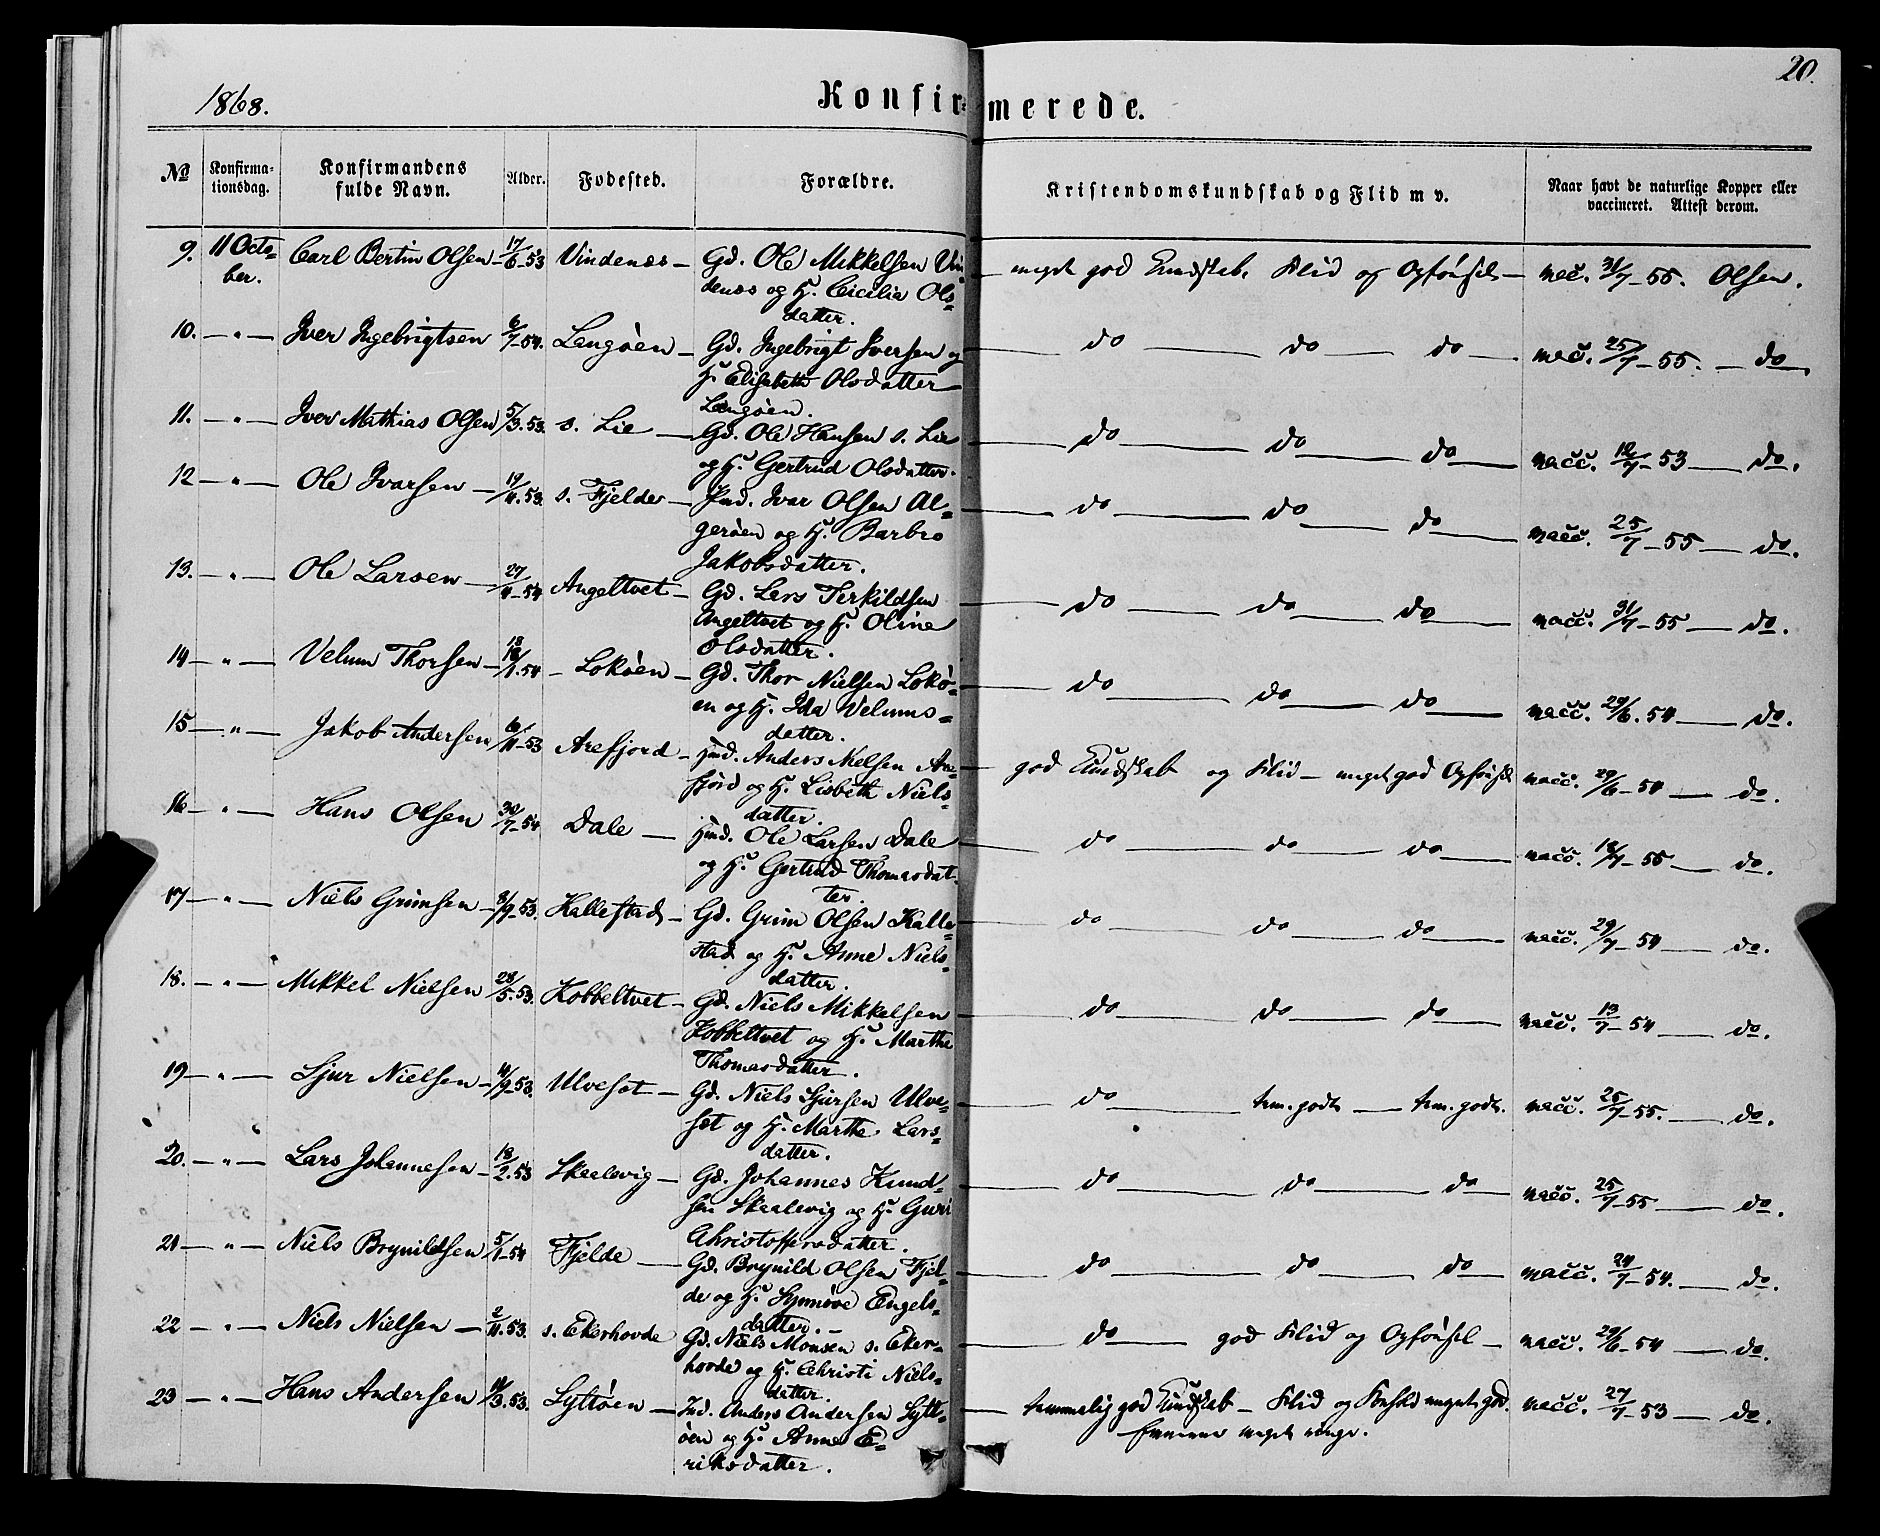 20.
1868.
Konfirmerede.
№ Konfirmationsdag. Konfirmandens fulde Navn. Alder. Fødested. Forældre. Kristendomskundskab og Flid m v. Naar havt de naturlige Kopper eller vaccineret. Attest derom.
9. 11 Octo- Carl Bertin Olsen – 17/6 – 53 Vindenæs – Gd. Ole Mikkelsen Vin – meget god Kundskab, Flid og Opførsel – vac. 31/7 – 55. Olsen.
ber. denæs og H. Cicilia Ols-
datter.
10. – " – Iver Ingebrigtsen 6/7. 54. Langøen – Gd. Ingebrigt Iversen og – do – do – do – vac. 25/7 – 55. – do.
H. Elisabeth Olsdatter
Langøen.
11. – " – Iver Mathias Olsen 5/3. 53. s. Lie – Gd. Ole Hansen s. Lie – do – do – do – vacc. 12/7 – 53 – do.
og H. Gertrud Olsdatter.
12 – " – Ole Ivarsen – 19/11. 53. s. Fjelde – Hmd. Ivar Olsen Al- – do – do – do – vacc. 25/7 – 55 – do.
gerøen og H. Barbro
Jakobsdatter.
13. – " – Ole Larsen – 27/11 – 54 Angeltvet – Gd. Lars Terkildsen – do – do – do – vacc. 31/7 – 55 – do.
Angeltvet og H. Oline
Olsdatter.
14 – " – Velum Thorsen – 18/1. 54 – Lokøen – Gd. Thor Nielsen Lokø- – do – do – do – vacc. 29/6. 54 – do.
en og H. Ida Velums-
datter.
15 – " – Jakob Andersen 6/11 – 53 Arefjord – Hmd. Anders Nielsen Are- god Kundskab og Flid – meget god Opførsel vacc. 29/6 – 54 – do.
fjord og H. Lisbeth Niels-
datter.
16 – " – Hans Olsen 30/7 – 54 Dale – Hmd. Ole Larsen Dale – do – do – do – vacc. 18/7 – 55 – do.
og H. Gertrud Thomasdat-
ter.
17 – " – Niels Grimsen – 8/9 – 53. Kallestad – Gd. Grim Olsen Kalle- – do – do – do – vacc. 29/7 – 54 – do.
stad og H. Anne Niels-
datter.
18. – " – Mikkel Nielsen 28/5. 53. Kobbeltvet – Gd. Niels Mikkelsen – do – do – do – vacc. 13/7 – 54 – do.
Kobbeltvet og H. Marthe
Thomasdatter.
19 – " – Sjur Nielsen – 11/9 – 53. Ulveset – Gd. Niels Sjursen Ulve- – do – tem. godt – tem. godt. vacc. 25/7 – 55. – do.
set og H. Marthe Lars-
datter.
20. – " – Lars Johannesen – 18/2. 53 Skaalevig – Gd. Johannes Knud- – do – do – do – vacc. 25/7 – 55 – do.
sen Skaalevig og H. Guri
Christoffersdatter.
21 – " – Niels Brynildsen 5/1 – 54 Fjelde – Gd. Brynild Olsen Fjel- – do – do – do – vacc. 24/7 – 54. – do.
de og H. Synnøve Engels-
datter. –
22 – " – Niels Nielsen – 2/11. 53. s. Ekerhovde Gd. Niels Monsen s. Eker- – do – god Flid og Opførsel – vacc. 29/6 – 54 – do.
hovde og H. Christi Niels-
datter.
23 – " – Hans Andersen 53. Syltøen – Ind. Anders Andersen Sylt- – temmelig god Kundskab – Flid og Forhold meget god. vacc. 27/7 – 53 – do.
øen og H. Anne E- Evnerne meget ringe.
riksdatter.